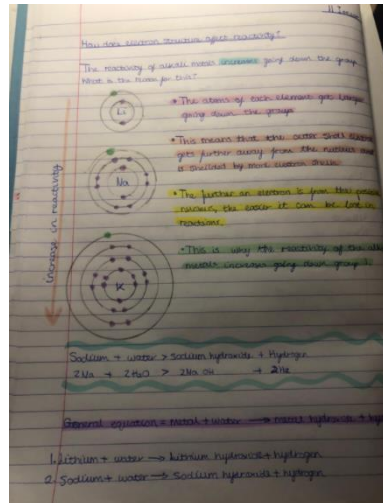 How does electron structure affect reactivity?
The reactivity of alkali metals increases going down the group.
What is the reason for this?
Li
• The atoms of each element get larger
going down the group
• This means that the outer shell electron
gets further away from the nucleus and
is shielded by more electron shells
Na
• The further an electron is from the positive
nucleus, the easier it can be lost in
reactions.
• This is why the reactivity of the
metals increases going down group 1
K
Increase in reactivity
Sodium + water > Sodium hydroxide + Hydrogen
2Na + 2H2O > 2NaOH +
General equation = Metal + water → metal hydroxide +
1. Lithium + water → Lithium hydroxide + hydrogen
2. Sodium + water → Sodium hydroxide + hydrogen